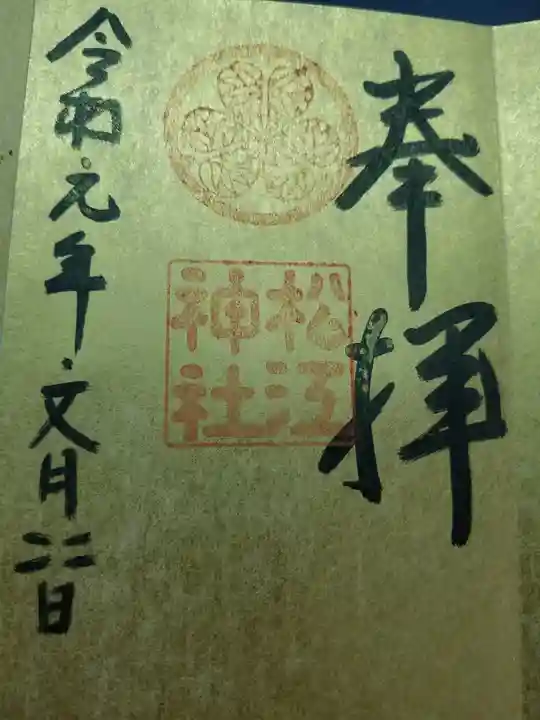 奉拝
松江
神社
令和元年文月二二日